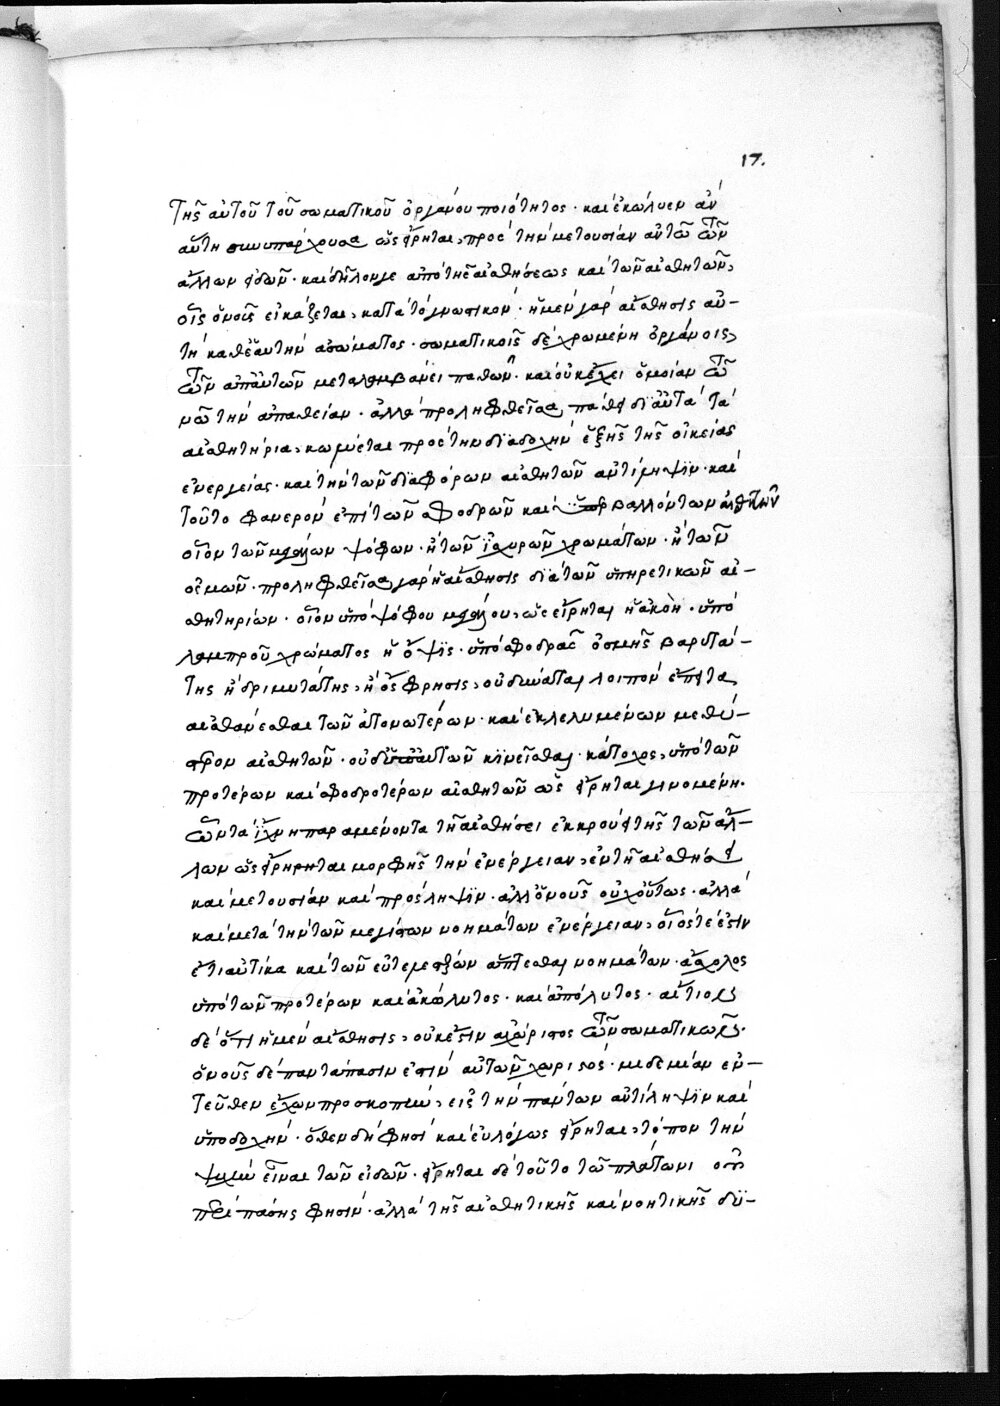 17.
τῆς αὐτοῦ τοῦ σωματικοῦ ὀργάνου ποιότητος· καὶ ἐκώλυεν ἂν
αὕτη συνυπάρχουσα ὡς εἴρηται, πρὸς τὴν μετουσίαν αὐτῶ τῶν
ἄλλων εἰδῶν· καὶ δῆλον γε ἀπὸ τῆς αἰσθήσεως καὶ τῶν αἰσθητῶν,
οἷς ὁ νοῦς εἰκάζεται, κατὰ τὸ γνωστικόν· ἡ μὲν γὰρ αἴσθησις αὐ-
τὴ καθ' ἑαυτὴν ἀσώματος· σωματικοῖς δὲ χρωμένη ὀργάνοις,
τῶν ἀπ' αὐτῶν μεταλαμβάνει παθῶν· καὶ οὐκ ἔχει ὁμοίαν τῶ
νῶ τὴν ἀπάθειαν· ἀλλὰ προληφθεῖσα πάθει δι' αὐτὰ τὰ
αἰσθητήρια, κωλύεται πρὸς τὴν διαδοχὴν ἑξῆς τῆς οἰκείας
ἐνεργείας· καὶ τὴν τῶν διαφόρων αἰσθητῶν ἀντίληψϊν· καὶ
τοῦτο φανερὸν ἐπὶ τῶν σφοδρῶν καὶ ὑπερβαλλόντων αἰσθητῶν
οἷον τῶν μεγάλων ψόφων· ἢ τῶν ἰσχυρῶν χρωμάτων· ἢ τῶν
ὀσμῶν· προληφθεῖσα γὰρ ἡ αἴσθησις διὰ τῶν ὑπηρετικῶν αἰ-
σθητηρίων· οἷον ὑπὸ ψόφου μεγάλου, ὡς εἴρηται ἡ ἀκοὴ· ὑπὸ
λαμπροῦ χρώματος ἡ ὄψις· ὑπὸ σφοδρᾶς ὀσμῆς βαρυτά-
της ἢ δριμυτάτης, ἡ ὄσφρησις, οὐ δύναται λοιπὸν ἔπειτα
αἰσθάνεσθαι τῶν ἀτονωτέρων· καὶ ἐκλελυμένων μεθύ-
στερον αἰσθητῶν· οὐδ' ὑπ' αὐτῶν κινεῖσθαι· κάτοχος, ὑπὸ τῶν
προτέρων καὶ σφοδροτέρων αἰσθητῶν ὡς εἴρηται γινομένη·
ὧν τὰ ἴχνη παραμένοντα τῆ αἰσθήσει ἐκκρούει τῆς τῶν ἄλ-
λων ὡς εἴρηται μορφῆς τὴν ἐνέργειαν, ἐν τῆ αἰσθήσει
καὶ μετουσίαν καὶ πρόσληψϊν· ἀλλ' ὁ νοῦς οὐχ οὕτως· ἀλλὰ
καὶ μετὰ τὴν τῶν μεγίστων νοημάτων ἐνέργειαν, οἷός τέ ἐστιν
ἔτι αὐτίκα καὶ τῶν εὐτελεστέρων ἅπτεσθαι νοημάτων· ἄσχολος
ὑπὸ τῶν προτέρων καὶ ἀκώλυτος· καὶ ἀπόλυτος· αἴτιον
δὲ ὅτι ἡ μὲν αἴσθησις, οὐκ ἔστιν ἀχώριστος τῶν σωματικῶν·
ὁ νοῦς δὲ παντάπασιν ἐστὶν αὐτῶν χωριστός· μηδεμίαν ἐν-
τεῦθεν ἔχων προσκοπὴν, εἰς τὴν πάντων ἀντίληψϊν καὶ
ὑποδοχήν· ὅθεν δή φησι καὶ εὐλόγως εἴρηται, τόπον τὴν
ψυχὴν εἶναι τῶν εἰδῶν· εἴρηται δὲ τοῦτο τῶ πλάτωνι οὐ
περὶ πάσης φησίν· ἀλλὰ τῆς αἰσθητικῆς καὶ νοητικῆς δυ-